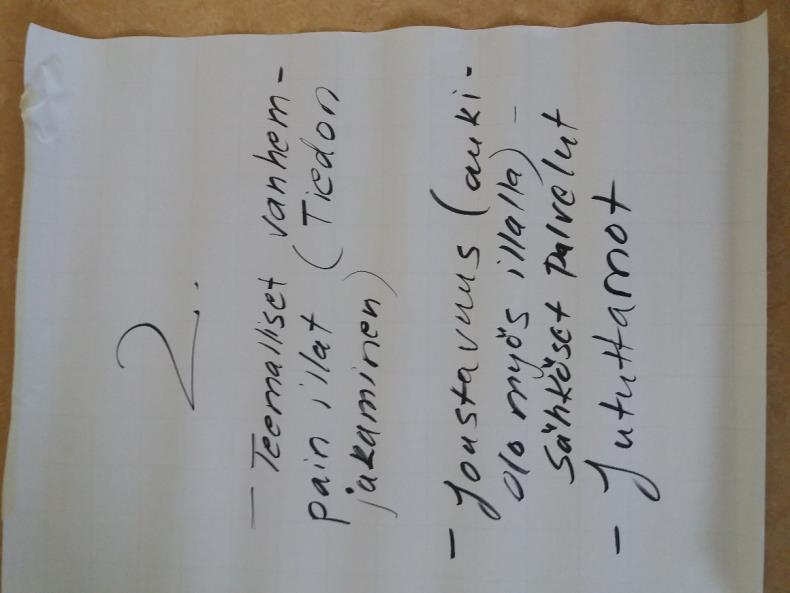 2.
- Teemalliset vanhem-
pain illat (Tiedon
jakaminen)
- Joustavuus (auki-
olo myös illalla) -
Sähköset palvelut
- Jututtamot